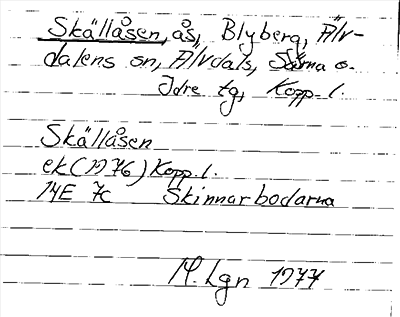 Skällåsen, ås, Blyberg, Älv-
dalens sn, Älvdals, Särna o.
Idre tg, Kopp. l.
Skällåsen
ek (1976) Kopp. l.
14E 7c Skinnarbodarna
M. Lgn 1977